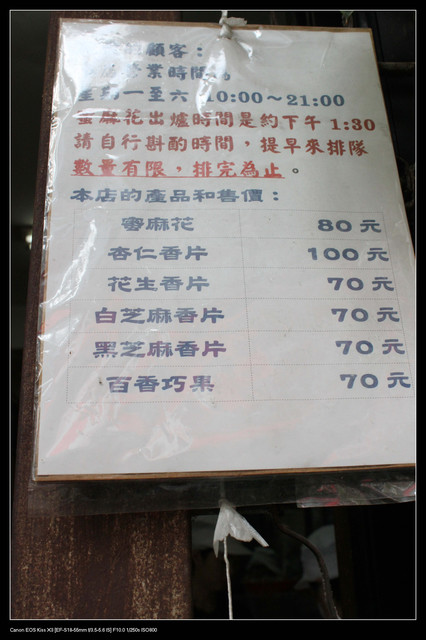 顧客：
業時間為
星期一至六 10:00～21:00
蜜麻花出爐時間是約下午 1:30
請自行斟酌時間，提早來排隊
數量有限，排完為止。
本店的產品和售價：
蜜麻花 80 元
杏仁香片 100 元
花生香片 70 元
白芝麻香片 70 元
黑芝麻香片 70 元
百香巧果 70 元
Canon EOS Kiss X3 [EF-S18-55mm f/3.5-5.6 IS] F10.0 1/250s ISO800